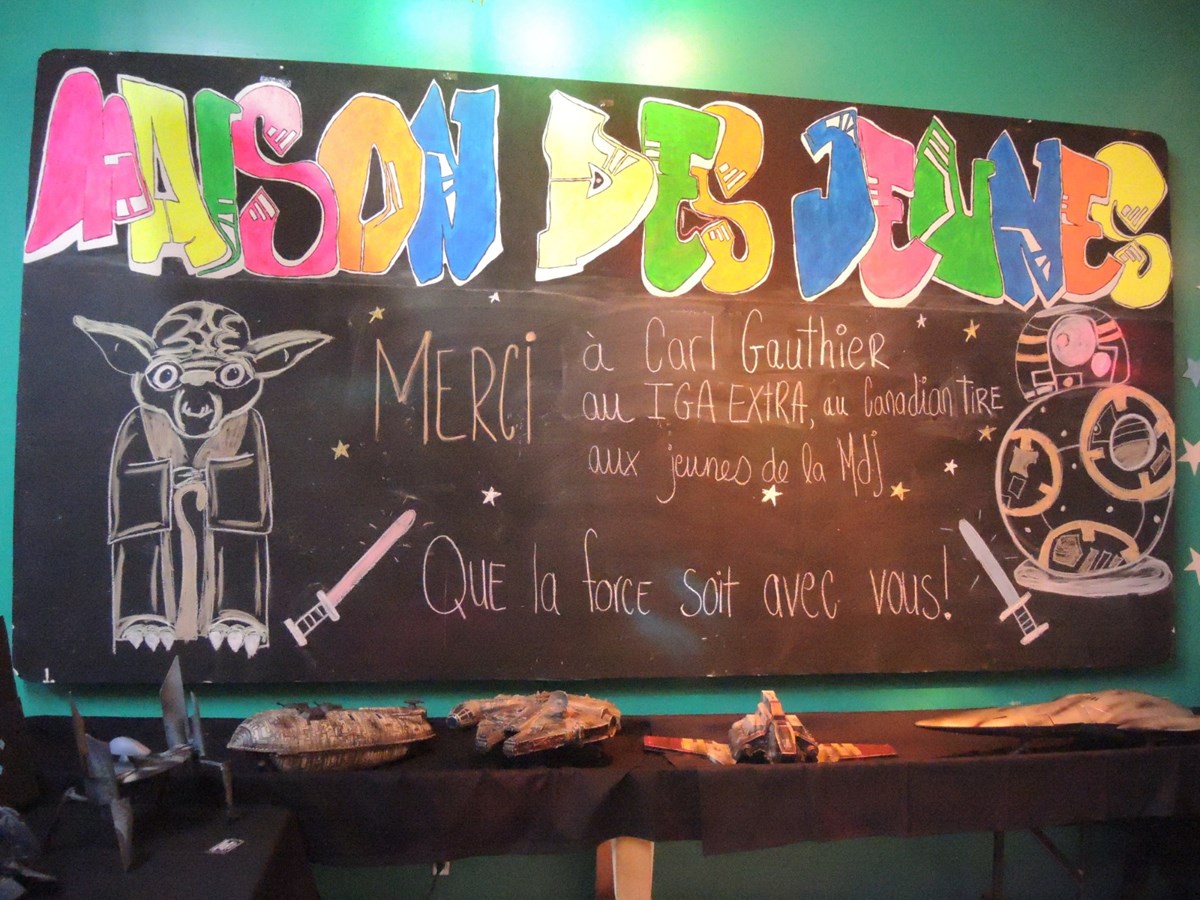 MAISON DES JEUNES
MERCI à Carl Gauthier
au IGA EXTRA, au Canadian TIRE
aux jeunes de la MdJ
QUE la force soit avec vous!